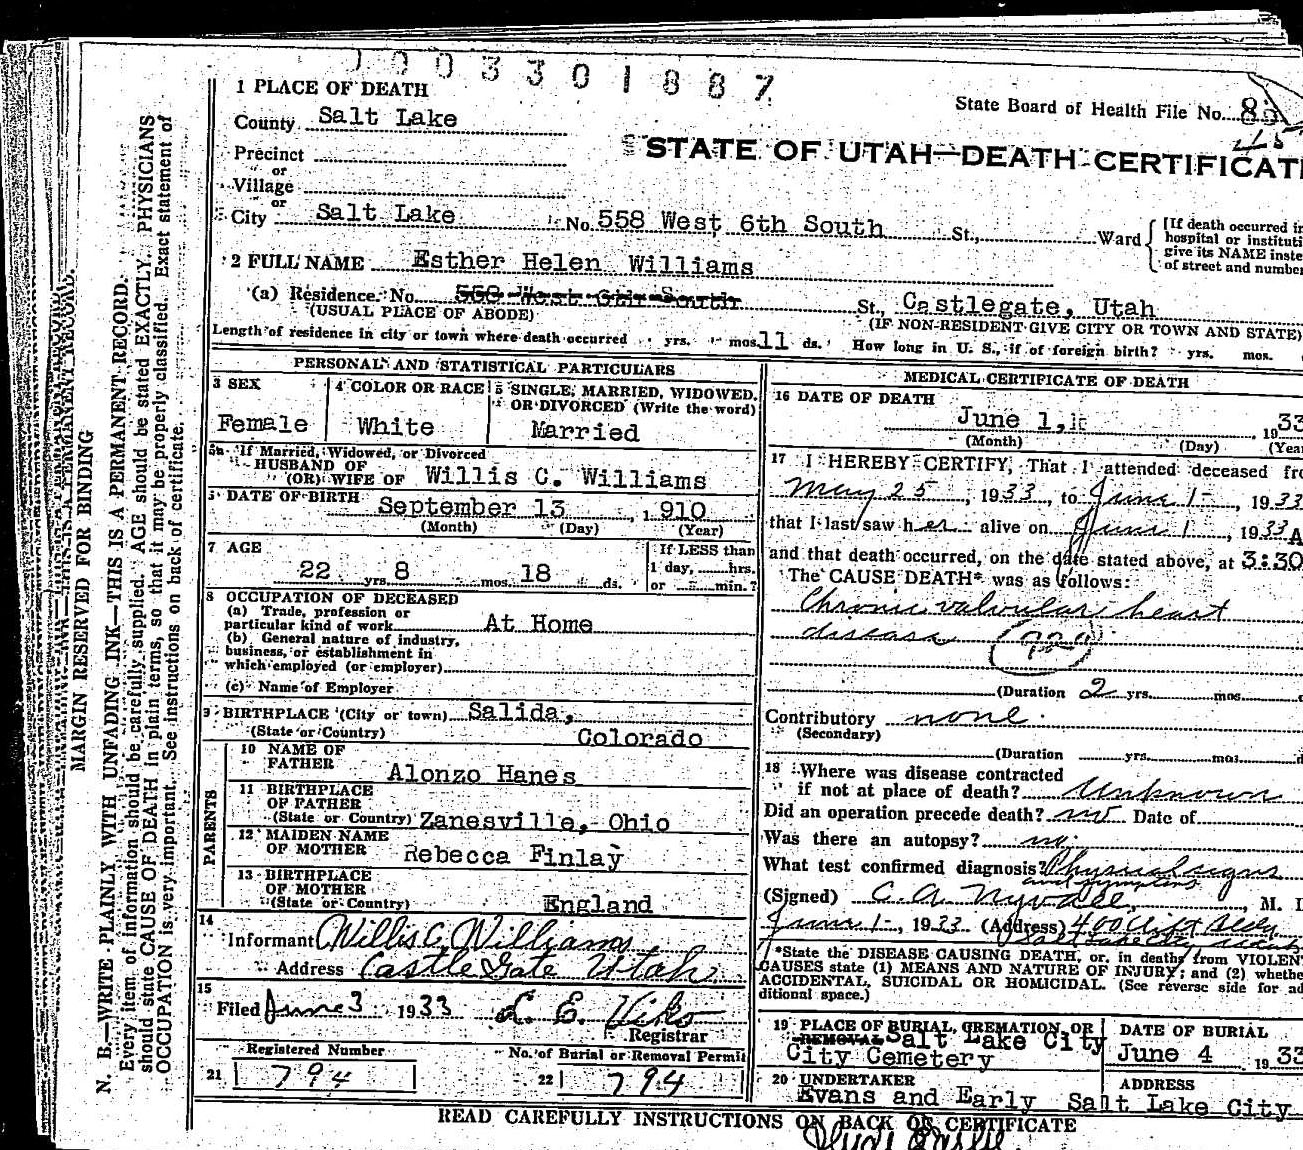 1003301887
1 PLACE OF DEATH
State Board of Health File No.
County Salt Lake
45
STATE OF UTAH—DEATH CERTIFICAT
Precinct
or
Village
or
City Salt Lake No. 558 West 6th South St., Ward
[If death occurred in
hospital or instituti
give its NAME inste
of street and number
2 FULL NAME Esther Helen Williams
(a) Residence. No. 558 West 6th South St., Castlegate, Utah
(USUAL PLACE OF ABODE) (IF NON-RESIDENT GIVE CITY OR TOWN AND STATE)
Length of residence in city or town where death occurred yrs. mos. 11 ds. How long in U. S., if of foreign birth? yrs. mos.
PERSONAL AND STATISTICAL PARTICULARS
3 SEX 4 COLOR OR RACE 5 SINGLE, MARRIED, WIDOWED,
OR DIVORCED (Write the word)
Female White Married
5a If Married, Widowed, or Divorced
HUSBAND OF
(OR) WIFE OF Willis C. Williams
DATE OF BIRTH
September 13, 1910
(Month) (Day) (Year)
7 AGE If LESS than
22 yrs. 8 mos. 18 ds. 1 day, hrs.
or min.?
8 OCCUPATION OF DECEASED
(a) Trade, profession or
particular kind of work At Home
(b) General nature of industry,
business, or establishment in
which employed (or employer)
(c) Name of Employer
9 BIRTHPLACE (City or town) Salida,
(State or Country) Colorado
PARENTS
10 NAME OF
FATHER Alonzo Hanes
11 BIRTHPLACE
OF FATHER
(State or Country) Zanesville, Ohio
12 MAIDEN NAME
OF MOTHER Rebecca Finlay
13 BIRTHPLACE
OF MOTHER
(State or Country) England
14
Informant Willis C. Williams
Address Castle Gate Utah
15
Filed June 3 1933 L. E. Viko
Registrar
Registered Number No. of Burial or Removal Permit
21 794 22 794
MEDICAL CERTIFICATE OF DEATH
16 DATE OF DEATH
June 1, 1933
(Month) (Day) (Yea
17 I HEREBY CERTIFY, That I attended deceased fro
May 25, 1933, to June 1-, 1933
that I last saw her alive on June 1, 1933 A
and that death occurred, on the date stated above, at 3:30
The CAUSE DEATH* was as follows:
Chronic valvular heart
disease
(Duration 2 yrs. mos.
Contributory none.
(Secondary)
(Duration yrs. mos. d
18 Where was disease contracted
if not at place of death? Unknown
Did an operation precede death? no Date of
Was there an autopsy? no.
What test confirmed diagnosis? Physical signs
and symptoms
(Signed) C. A. Nyvall, M. D
June 1-, 1933 (Address) 400 Clift Bldg
Salt Lake City Utah
*State the DISEASE CAUSING DEATH, or, in deaths from VIOLENT
CAUSES state (1) MEANS AND NATURE OF INJURY; and (2) whethe
ACCIDENTAL, SUICIDAL OR HOMICIDAL. (See reverse side for ad
ditional space.)
19 PLACE OF BURIAL, CREMATION, OR DATE OF BURIAL
REMOVAL Salt Lake City
City Cemetery June 4 1933
20 UNDERTAKER ADDRESS
Evans and Early Salt Lake City
READ CAREFULLY INSTRUCTIONS ON BACK OF CERTIFICATE
MARGIN RESERVED FOR BINDING
N. B.—WRITE PLAINLY WITH UNFADING INK—THIS IS A PERMANENT RECORD.
Every item of information should be carefully supplied. AGE should be stated EXACTLY. PHYSICIANS
should state CAUSE OF DEATH in plain terms, so that it may be properly classified. Exact statement of
OCCUPATION is very important. See instructions on back of certificate.